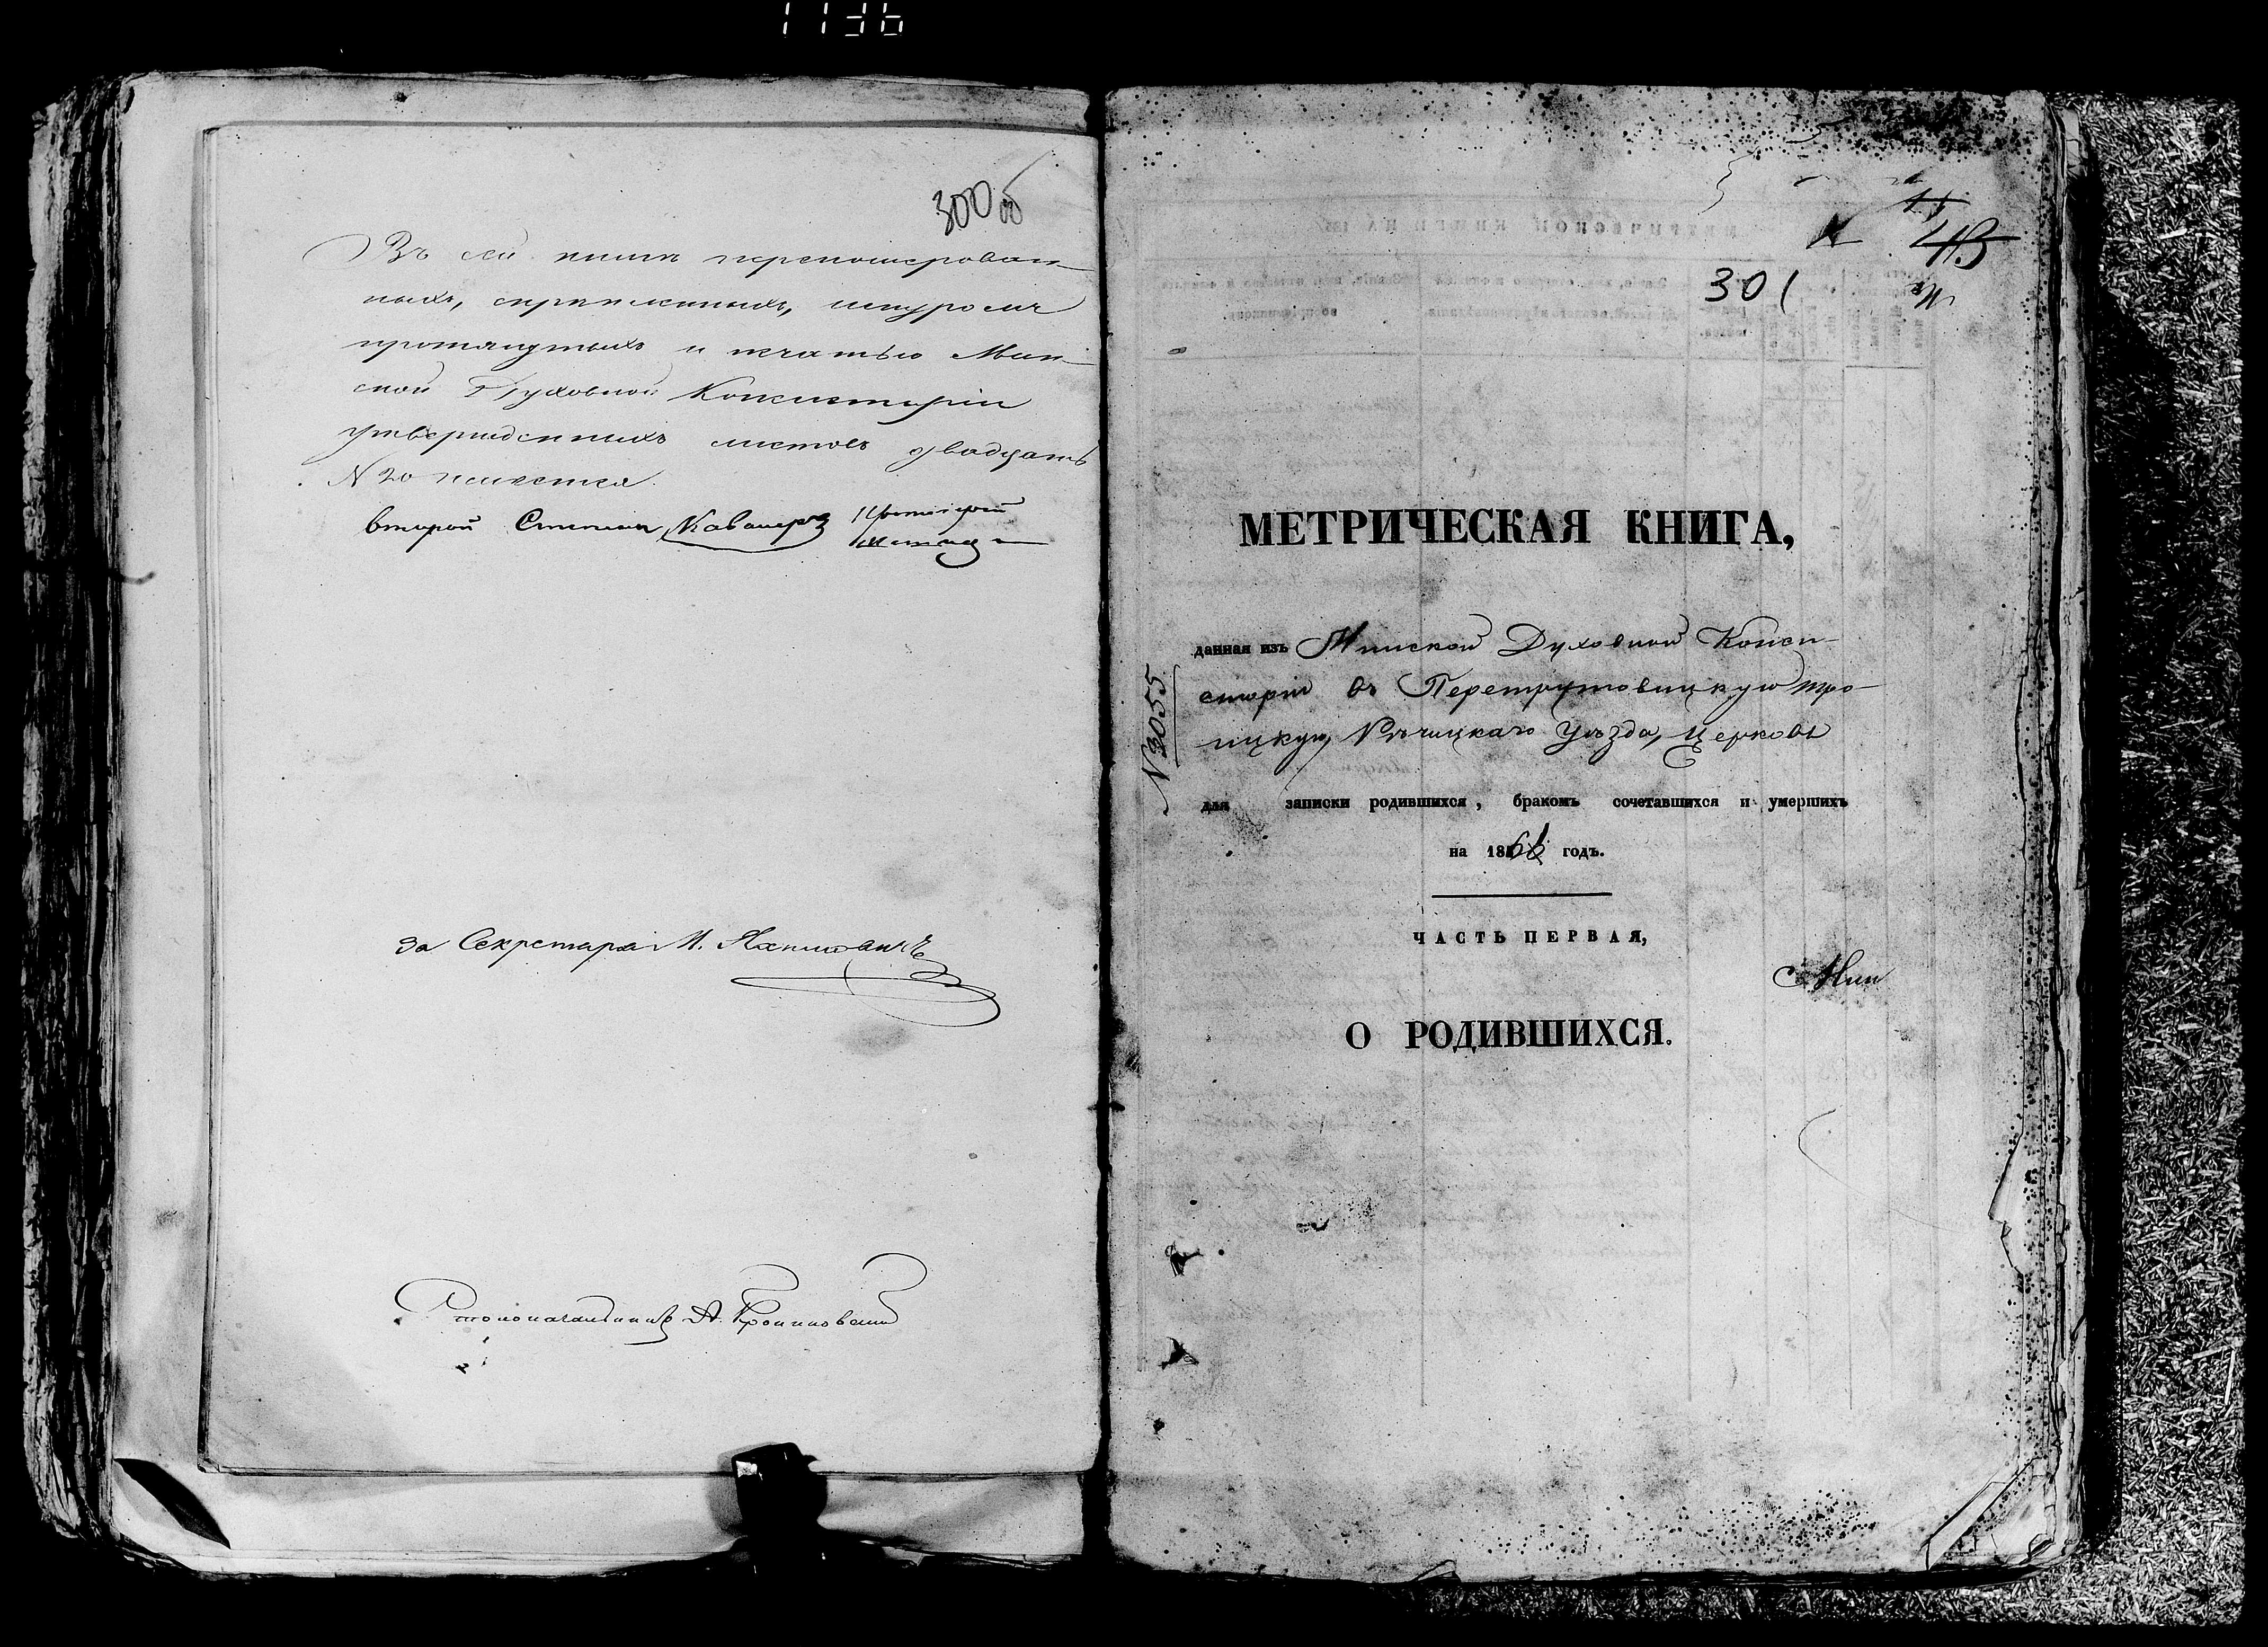 1136
300 об
Въ сей книгѣ перенумерован-
ныхъ, скрѣпленныхъ, шнуромъ
протянутыхъ и печатью Мин-
ской Духовной Консисторіи
утвержденныхъ листовъ двадцать
N 20 имѣется.
второй Степени Кавалеръ Протоіерей
за Секретаря М.
Столоначальникъ А.
301
МЕТРИЧЕСКАЯ КНИГА,
данная изъ Минской Духовной Конси-
сторіи въ Перетрутовицкую Тро-
ицкую, Рѣчицкаго Уѣзда, Церковь
N 2055
для записки родившихся, бракомъ сочетавшихся и умершихъ
на 1861 годъ.
ЧАСТЬ ПЕРВАЯ,
Мин
О РОДИВШИХСЯ.